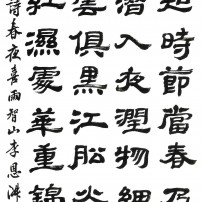 時節當春乃
潛入夜潤物細
雲俱黑江舩火
紅濕處華重錦
詩春夜喜雨智山李恩